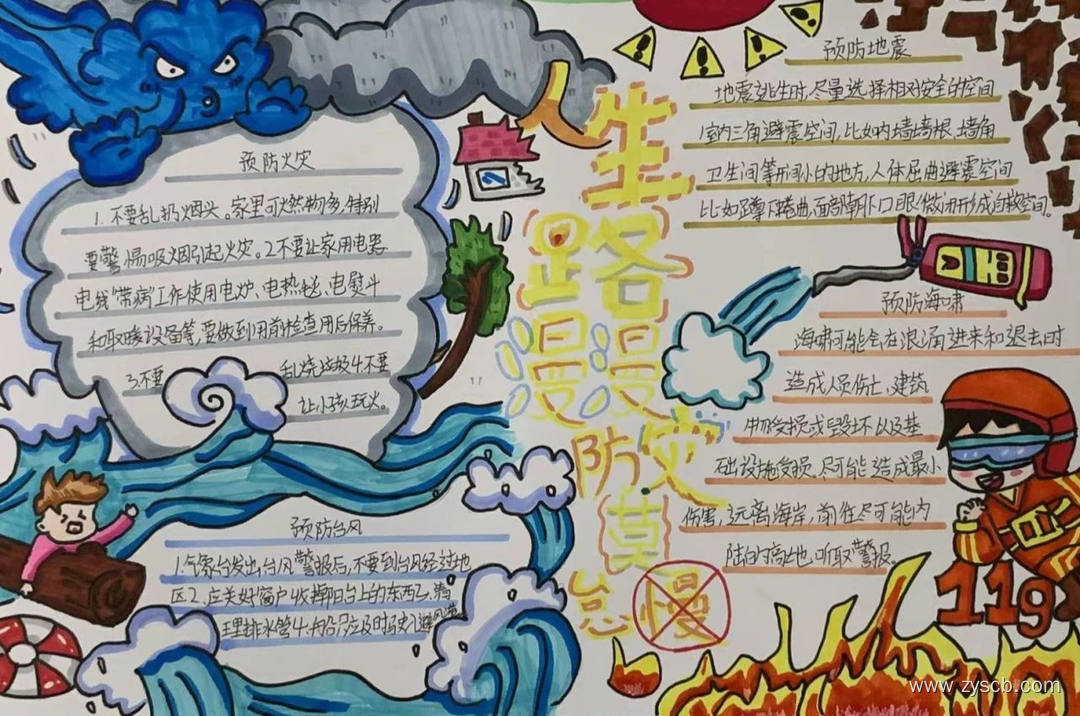 人生
路
漫漫
防灾
莫
怠慢
预防火灾
1.不要乱扔烟头。家里可燃物多,特别
要警惕吸烟引起火灾。2不要让家用电器
电线“带病”工作使用电炉、电热毯、电熨斗
和取暖设备等,要做到用前检查用后保养。
3.不要 乱烧垃圾4.不要
让小孩玩火。
预防台风
1.气象台发出台风警报后,不要到台风经过地
区2.应关好窗户收掉阳台上的东西
理排水管4.
预防地震
地震逃生时,尽量选择相对安全的空间
室内三角避震空间,比如内墙墙根、墙角
卫生间等开间小的地方,人体屈曲避震空间
比如蹲下蜷曲,面部朝下口眼
预防海啸
海啸可能会在浪涌进来和退去时
造成人员伤亡、建筑
物受损或毁坏以及基
础设施受损,尽可能造成最小
伤害,远离海岸,前往尽可能内
陆的高地,听取警报。
119
www.zyscb.com